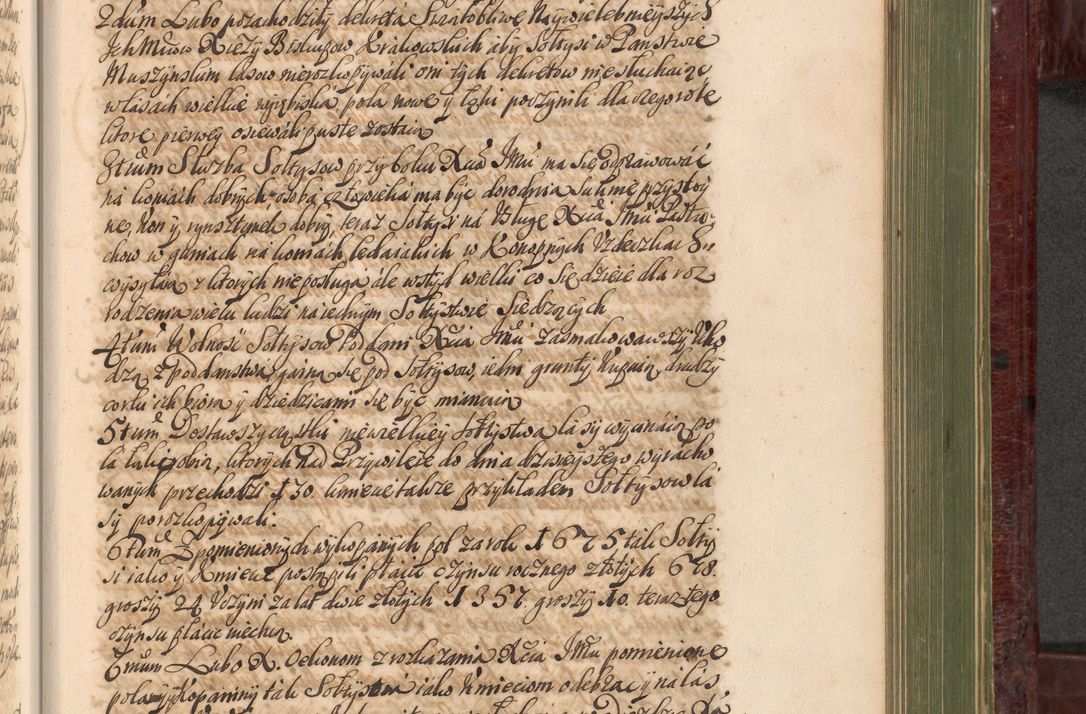 2dum Lubo pozachodziły dekreta Swiatobliwie Naywielebnieyszych
Ich Mciow Xięży Biskupow Krakowskich aby Sołtysi w Panstwie
Muszynskim lasow nierozkopywali oni tych dekretow niesłuchaiąc
w lasach wielkie wyrębiska pola nowe y łąki poczynili dla czego role
ktore pierwey osiewali puste zostaią
3tium Służba Sołtysow przy boku Xcia Jmci ma się odprawować
na koniach dobrych, osoba człowieka ma być dorodnia Suknie przystoy
ne, kon y rynsztunek dobry, teraz Sołtysi na Usługę Xcia Jmci Pastu
chow w guniach na koniach ledaiakich w Konopnych Uzdeczkach
wysyłaią z ktorych nieposługa ale wstyd wielki co się dzieie dla roz
rodzenia wielu ludzi na iednym Sołtystwie Siedzących
4tum Wolnosc Sołtysow Poddani Xcia Jmci zasmakowawszy Ucho
dzą z poddanstwa garną się pod Sołtysow, iedni grunty kupuią drudzy
corki ich biorą y dziedzicami się być mianuią
5tum Dostawszy cząstki niewielkiey sołtystwa lasy wycinaią po
la łaki robią, ktorych nad Przywileie do dnia dzisieyszego wyracho
wanych przechodzi 130 kmiecie także przykładem Sołtysow la
sy porozkopywali.
6tum Z pomienionych wykopanych pol za rok 1675 tak Sołty
si iako y Kmiece postąpili płacić czynsu rocznego złotych 678.
groszy 24 Uczyni za lat dwie złotych 1357. groszy 10. teraz tego
czynsu płacic niechcą.
7mum Lubo X. Oekonom z rozkazania Xcia Jmci pomienione
pola wykopaniny tak Sołtysom iako Kmieciom odebrać y na las